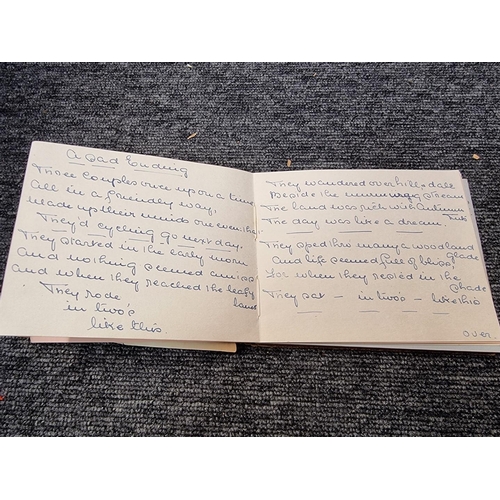 A Sad Ending
Three couples once upon a time
All in a friendly way,
Made up their minds one evening
They'd cycling go next day.
They started in the early morn
And nothing seemed amiss
And when they reached the leafy
lanes
They rode
in two's
like this.
They wandered over hill & dale
Beside the murmuring stream
The land was rich with Autumn
The day was like a dream.
They sped thro many a woodland
glade
And life seemed full of bliss,
For when they rested in the
shade
They sat — in twos — like this
over.